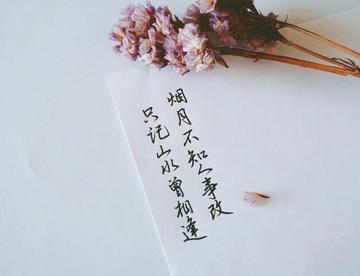 烟月不知人事改
只记山水曾相逢